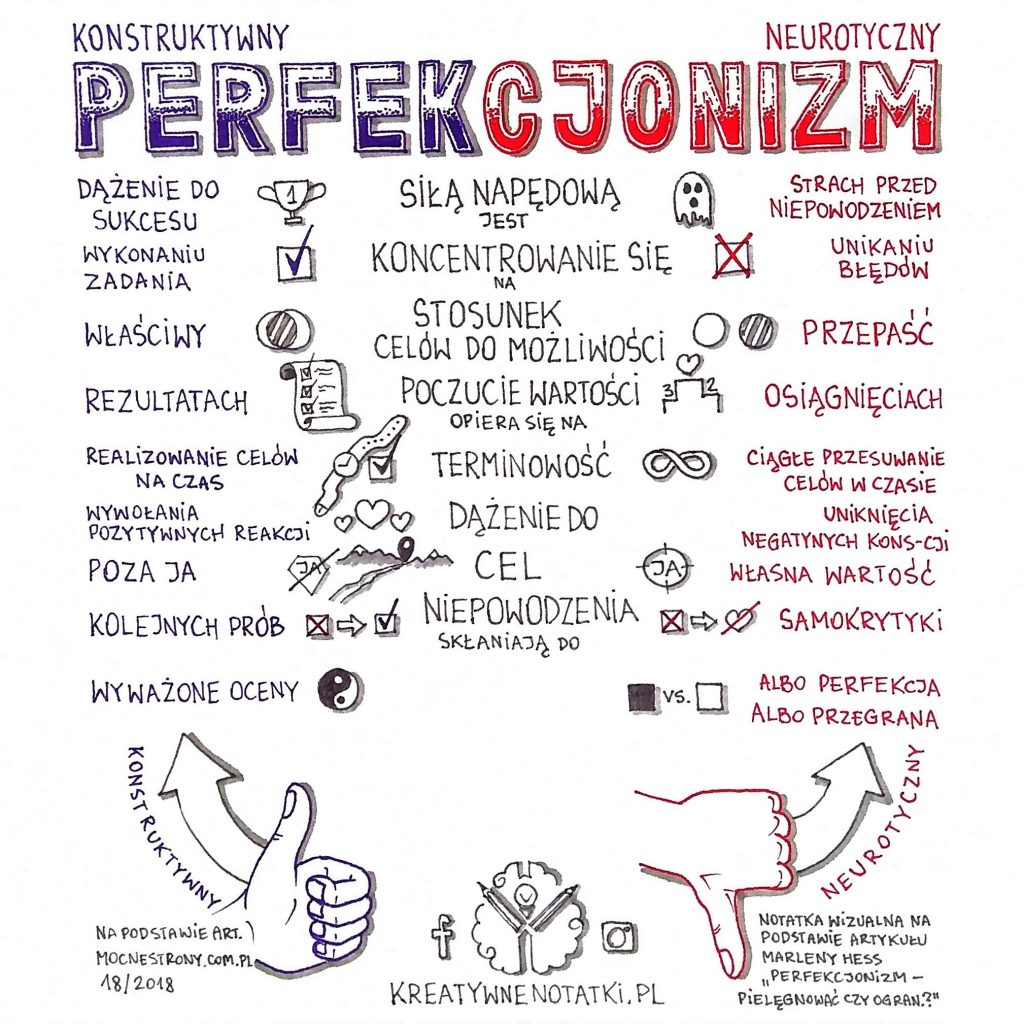 KONSTRUKTYWNY NEUROTYCZNY
PERFEKCJONIZM
DĄŻENIE DO SUKCESU
1
SIŁĄ NAPĘDOWĄ
JEST
STRACH PRZED
NIEPOWODZENIEM
WYKONANIU
ZADANIA
KONCENTROWANIE SIĘ
NA
UNIKANIU
BŁĘDÓW
WŁAŚCIWY
STOSUNEK
CELÓW DO MOŻLIWOŚCI
PRZEPAŚĆ
REZULTATACH
POCZUCIE WARTOŚCI
OPIERA SIĘ NA
3 2
OSIĄGNIĘCIACH
REALIZOWANIE CELÓW
NA CZAS
TERMINOWOŚĆ
CIĄGŁE PRZESUWANIE
CELÓW W CZASIE
WYWOŁANIA
POZYTYWNYCH REAKCJI
DĄŻENIE DO
UNIKNIĘCIA
NEGATYNYCH KONS-CJI
POZA JA
JA
CEL
JA
WŁASNA WARTOŚĆ
KOLEJNYCH PRÓB
NIEPOWODZENIA
SKŁANIAJĄ DO
SAMOKRYTYKI
WYWAŻONE OCENY
VS.
ALBO PERFEKCJA
ALBO PRZEGRANA
KONSTRUKTYWNY
NEUROTYCZNY
NA PODSTAWIE ART.
MOCNESTRONY.COM.PL
18/2018
f
KREATYWNENOTATKI.PL
NOTATKA WIZUALNA NA
PODSTAWIE ARTYKUŁU
MARLENY HESS
„PERFEKCJONIZM –
PIELĘGNOWAĆ CZY OGRAN.?"